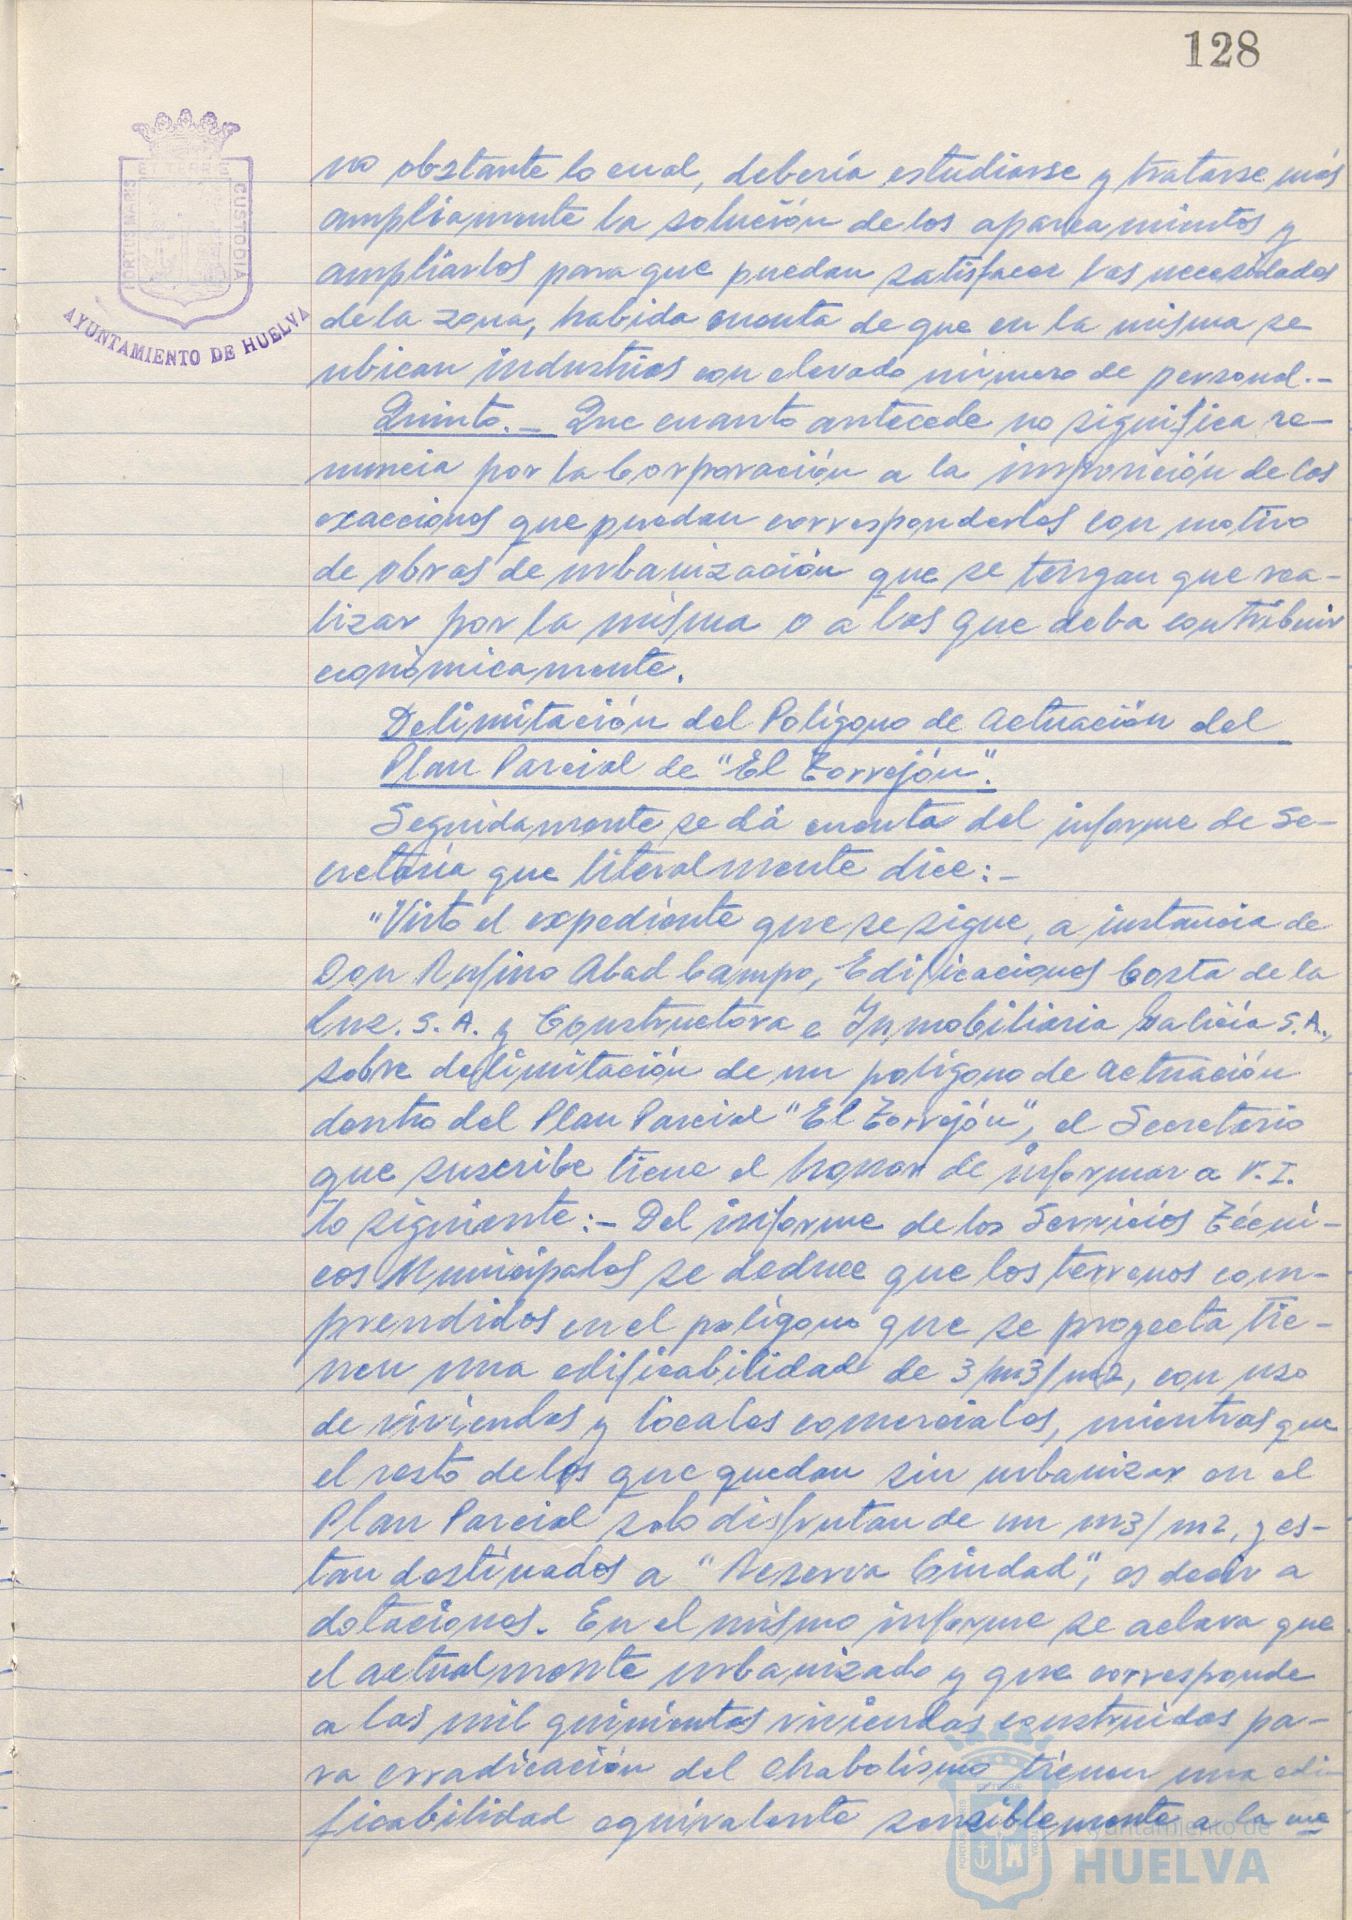 128
PORTUS MARIS
CUSTODIA
AYUNTAMIENTO DE HUELVA
no obstante lo cual, debería estudiarse y tratarse más
ampliamente la solución de los aparcamientos y
ampliarlos para que puedan satisfacer las necesidades
de la zona, habida cuenta de que en la misma se
ubican industrias con elevado número de personal.-
Quinto.- Que cuanto antecede no significa re-
nuncia por la Corporación a la imposición de las
exacciones que puedan corresponderles con motivo
de obras de urbanización que se tengan que rea-
lizar por la misma o a las que deba contribuir
económicamente.
Delimitación del Polígono de Actuación del
Plan Parcial de "El Torrejón".
Seguidamente se dá cuenta del informe de Se-
cretaría que literalmente dice:-
"Visto el expediente que se sigue, a instancia de
Don Rufino Abad Campo, Edificaciones Costa de la
Luz. S. A. y Constructora e Inmobiliaria Galicia S.A.,
sobre delimitación de un polígono de actuación
dentro del Plan Parcial "El Torrejón", el Secretario
que suscribe tiene el honor de informar a V. I.
lo siguiente:- Del informe de los Servicios Técni-
cos Municipales se deduce que los terrenos com-
prendidos en el polígono que se proyecta tie-
nen una edificabilidad de 3/m3/m2, con uso
de viviendas y locales comerciales, mientras que
el resto de los que quedan sin urbanizar en el
Plan Parcial solo disfrutan de un m3/m2, y es-
tan destinados a "Reserva Ciudad", es decir a
dotaciones. En el mismo informe se aclara que
el actualmente urbanizado y que corresponde
a las mil quinientas viviendas construidas pa-
ra erradicación del chabolismo tienen una edi-
ficabilidad equivalente sensiblemente a la me
Ayuntamiento de
HUELVA